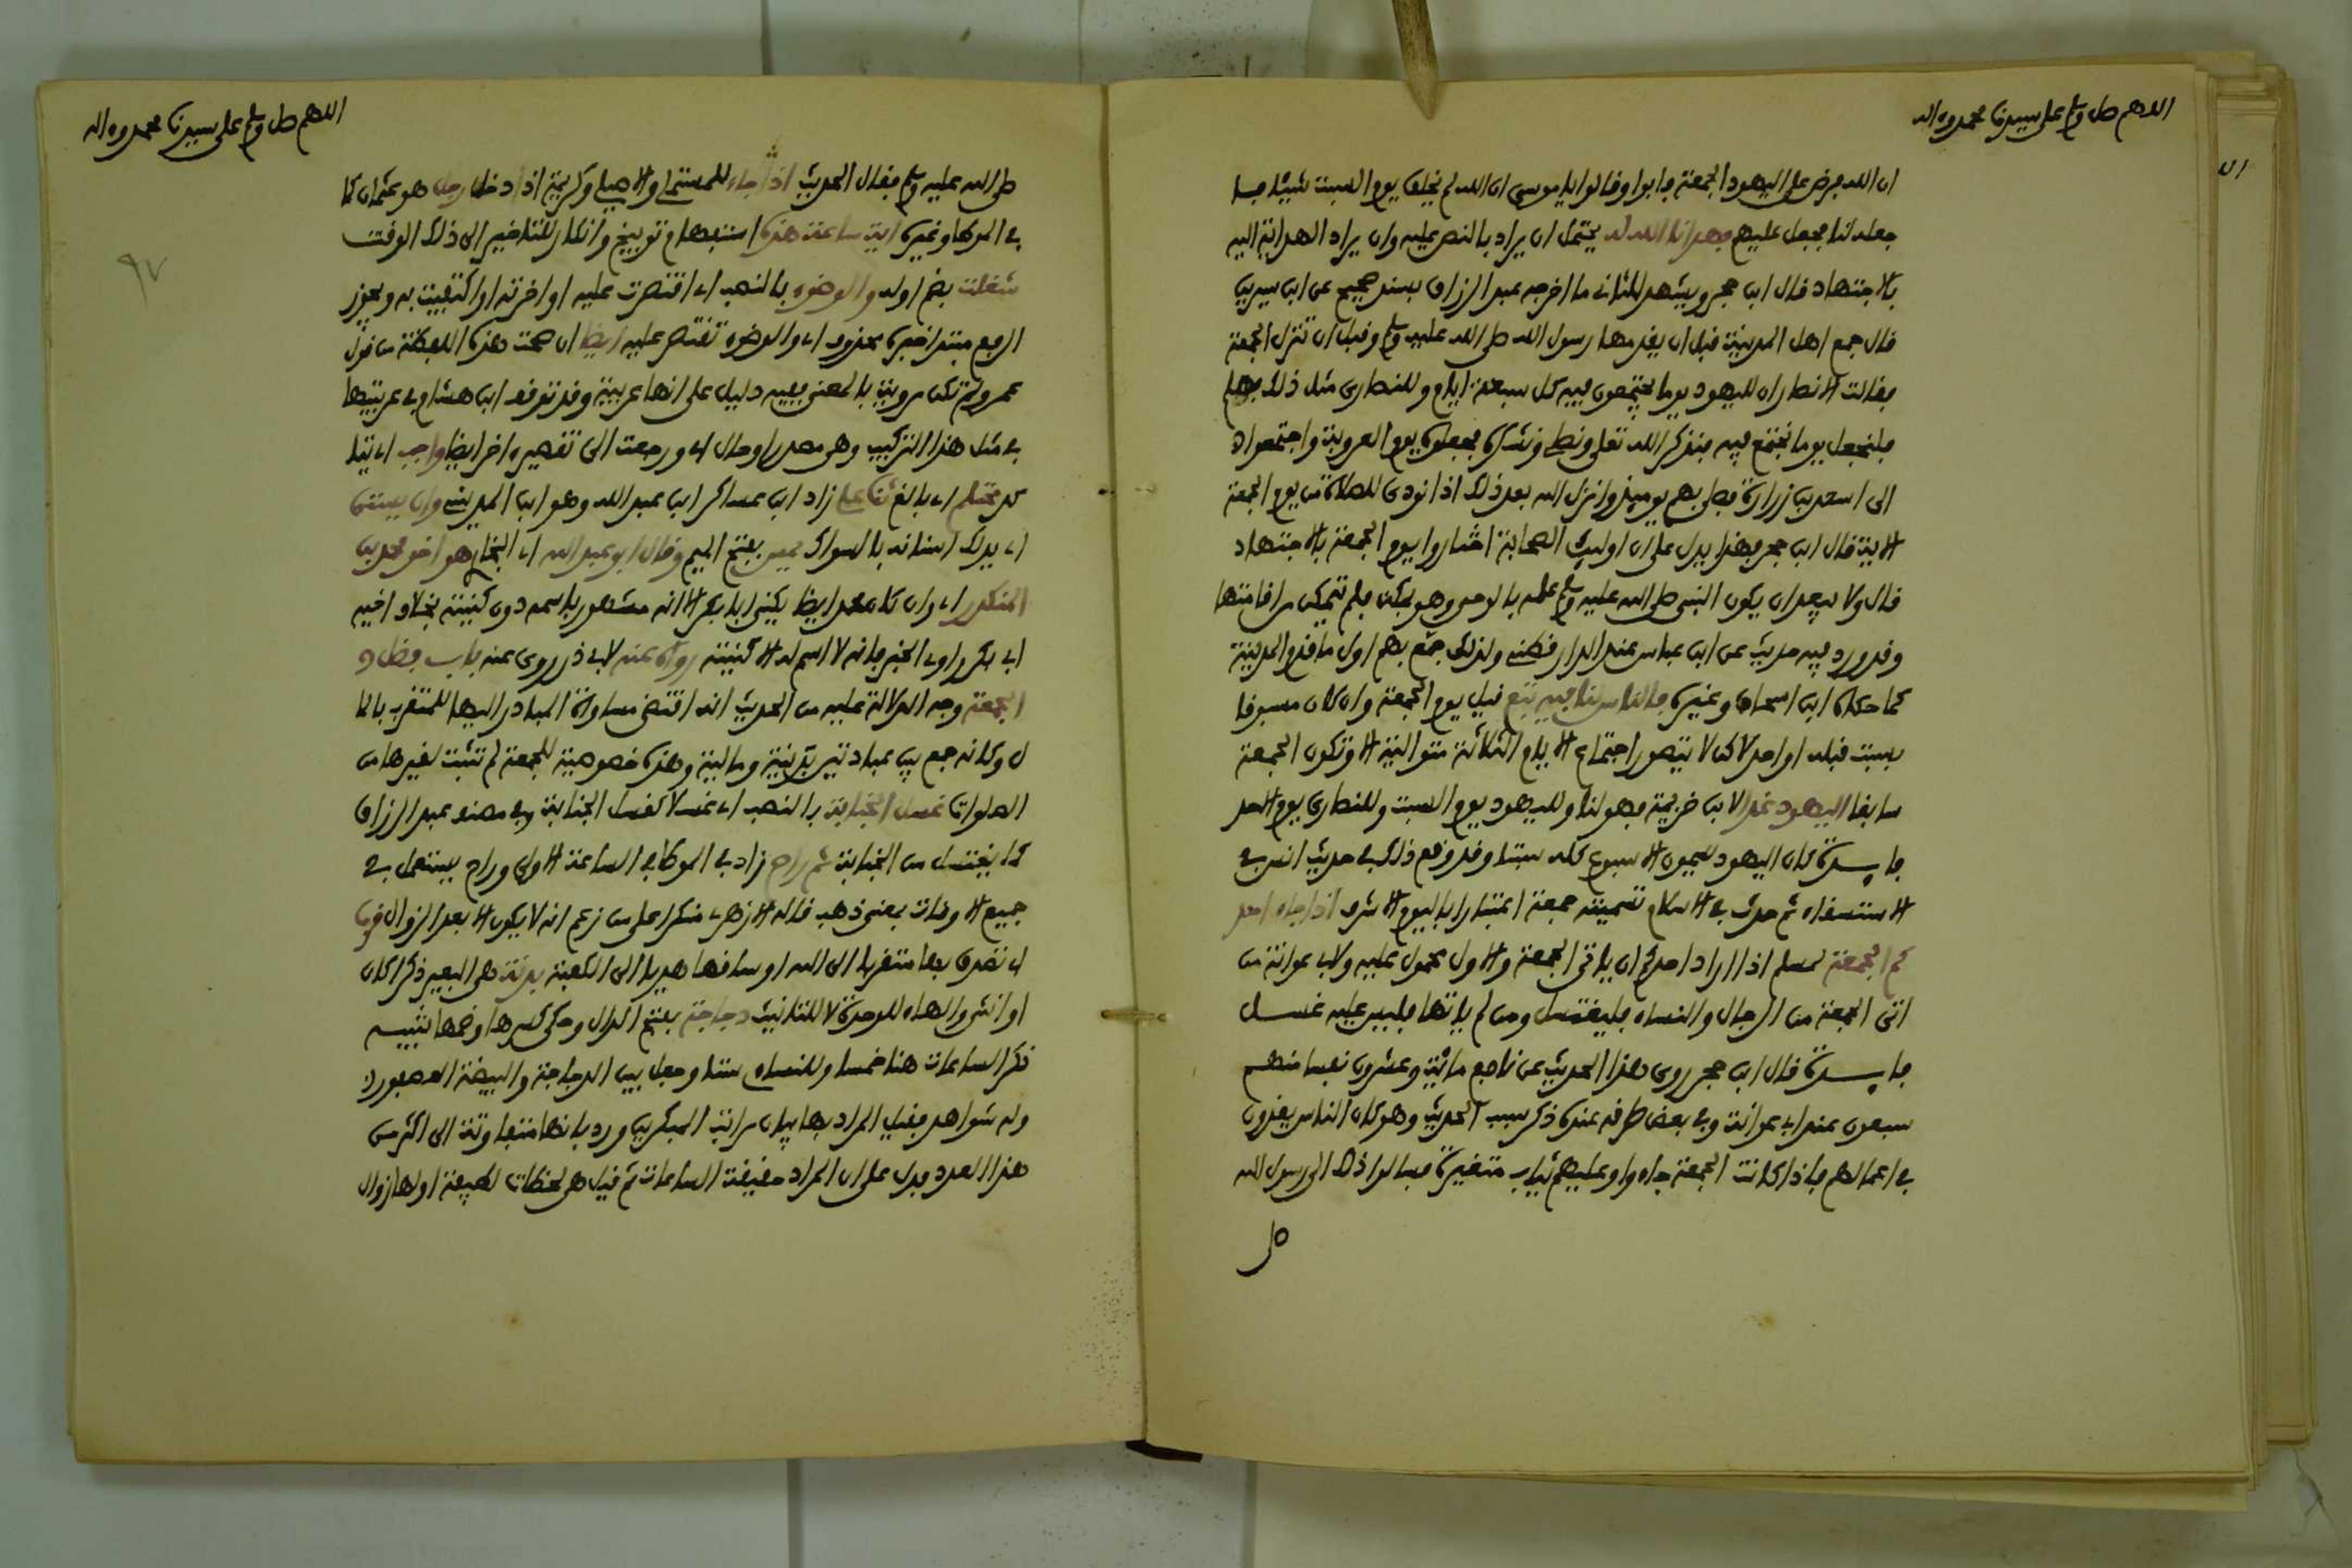 اللهم صل وسلم على سيدنا محمد وءاله
ان الله فرض على اليهود الجمعة فابوا وقالوا يا موسى ان الله لم يخلق يوم السبت شيئا فا
جعله لنا فجعل عليهم فهدانا الله له يحتمل ان يراد بالنص عليه وان يراد الهداية اليه
بالاجتهاد قال ابن حجر ويشهد للثانى ما اخرجه عبد الرزاق بسند صحيح عن ابن سيرين
قال جمع اهل المدينة قبل ان يقدمها رسول الله صلى الله عليه وسلم وقبل ان تنزل الجمعة
فقالت الانصار ان لليهود يوما يجتمعون فيه كل سبعة ايام وللنصارى مثل ذلك فهلم
فلنجعل يوما نجتمع فيه فنذكر الله تعلى ونصلى ونشكره فجعلوه يوم العروبة واجتمعوا
الى اسعد بن زرارة فصلى بهم يوميذ وانزل الله بعد ذلك اذا نودى للصلاة من يوم الجمعة
الاية قال ابن حجر فهذا يدل على ان اوليك الصحابة اختاروا يوم الجمعة بالاجتهاد
قال ولا يبعد ان يكون النبى صلى الله عليه وسلم علمه بالوحى وهو بمكة فلم يتمكن من اقامتها
وقد ورد فيه حديث عن ابن عباس عند الدارقطنى ولذلك جمع بهم اول ما قدم المدينة
كما حكاه ابن اسحاق وغيره فالناس لنا فيه تبع قيل يوم الجمعة وان كان مسبوقا
بسبت قبله او احد لاكن لا يتصور اجتماع الايام الثلاثة متوالية الا وتكون الجمعة
سابقا اليهود غدا لابن خزيمة فهو لنا ولليهود يوم السبت وللنصارى يوم الاحد
فايدة كان اليهود يسمون الاسبوع كله سبتا وقد وقع ذلك فى حديث انس فى
الاستسقاء ثم حدث فى الاسلام تسميته جمعة اعتبارا باليوم الاشرف اذا جاء احد
كم الجمعة لمسلم اذا اراد احدكم ان ياتى الجمعة والاول محمول عليه ولابى عوانة من
اتى الجمعة من الرجال والنساء فليغتسل ومن لم ياتها فليس عليه غسل
فايدة قال ابن حجر روى هذا الحديث عن نافع مائة وعشرون نفسا منهم
سبعون عند ابى عوانة وفى بعض طرفه عنده ذكر سبب الحديث وهو كان الناس يغدون
فى اعمالهم فاذا كانت الجمعة جاءوا وعليهم ثياب متغيرة فسالوا ذلك الى رسول الله
صل
اللهم صل وسلم على سيدنا محمد وءاله
صلى الله عليه وسلم فقال الحديث اذ جاء للمستملى والاصيلى وكريمة اذا دخل رجل هو عثمان كما
فى الموطا وغيره اية ساعة هذه استفهام توبيخ وانكار للتاخير الى ذلك الوقت
شغلت بضم اوله والوضوء بالنصب اى اقتصرت عليه او اخرته او اكتفيت به ويجوز
الرفع مبتدا خبره محذوف اى والوضوء تقتصر عليه ايضا ان صحت هذه اللفظة من قول
عمر ولم تكن مروية بالمعنى ففيه دليل على انها عربية وقد توقف ابن هشام فى عربيتها
فى مثل هذا التركيب وهى مصدر او حال اى ورجعت الى تقصير اخر ايضا واجب اى تا
كد محتلم اى بالغ ثنا على زاد ابن عساكر ابن عبد الله وهو ابن المدينى وان يستن
اى يدلك اسنانه بالسواك يمس بفتح الميم وقال ابو عبد الله اى البخارى هو اخو محمد بن
المنكدر اى وان كان محمد ايضا يكنى ابا بكر الا انه مشهور باسمه دون كنيته بخلاف اخيه
ابى بكر راوى الخبر فانه لا اسم له الا كنيته رواه عنه لابى ذر روى عنه باب فضل
الجمعة وجه الدلالة عليه من الحديث انه اقتضى مساواة المبادر اليها للمتقرب بالما
ل وكانه جمع بين عبادتين بدنية ومالية وهذه خصوصية للجمعة لم تثبت لغيرها من
الصلوات غسل الجنابة بالنصب اى غسلا كغسل الجنابة وفى مصنف عبد الرزاق
كما يغتسل من الجنابة ثم راح زاد فى الموطا فى الساعة الاولى وراح يستعمل فى
جميع الاوقات بمعنى ذهب قاله الازهرى منكرا على من زعم انه لا يكون الا بعد الزوال قرب
اى تصدق بها متقربا الى الله او ساقها هديا الى الكعبة بدنة هى البعير ذكرا كان
او انثى والهاء للوحدة لا للتانيث دجاجة بفتح الدال وحكى كسرها وضمها تنبيه
ذكر الساعات هنا خمسا وللنساءى ستا وجعل بين الدجاجة والبيضة العصفور
وله شواهد فقيل المراد بها بيان مراتب المبكرين ورد بانها متفاوتة الى اكثر من
هذا العدد فدل على ان المراد حقيقة الساعات ثم قيل هى لحظات لطيفة اولها زوال
٩٧